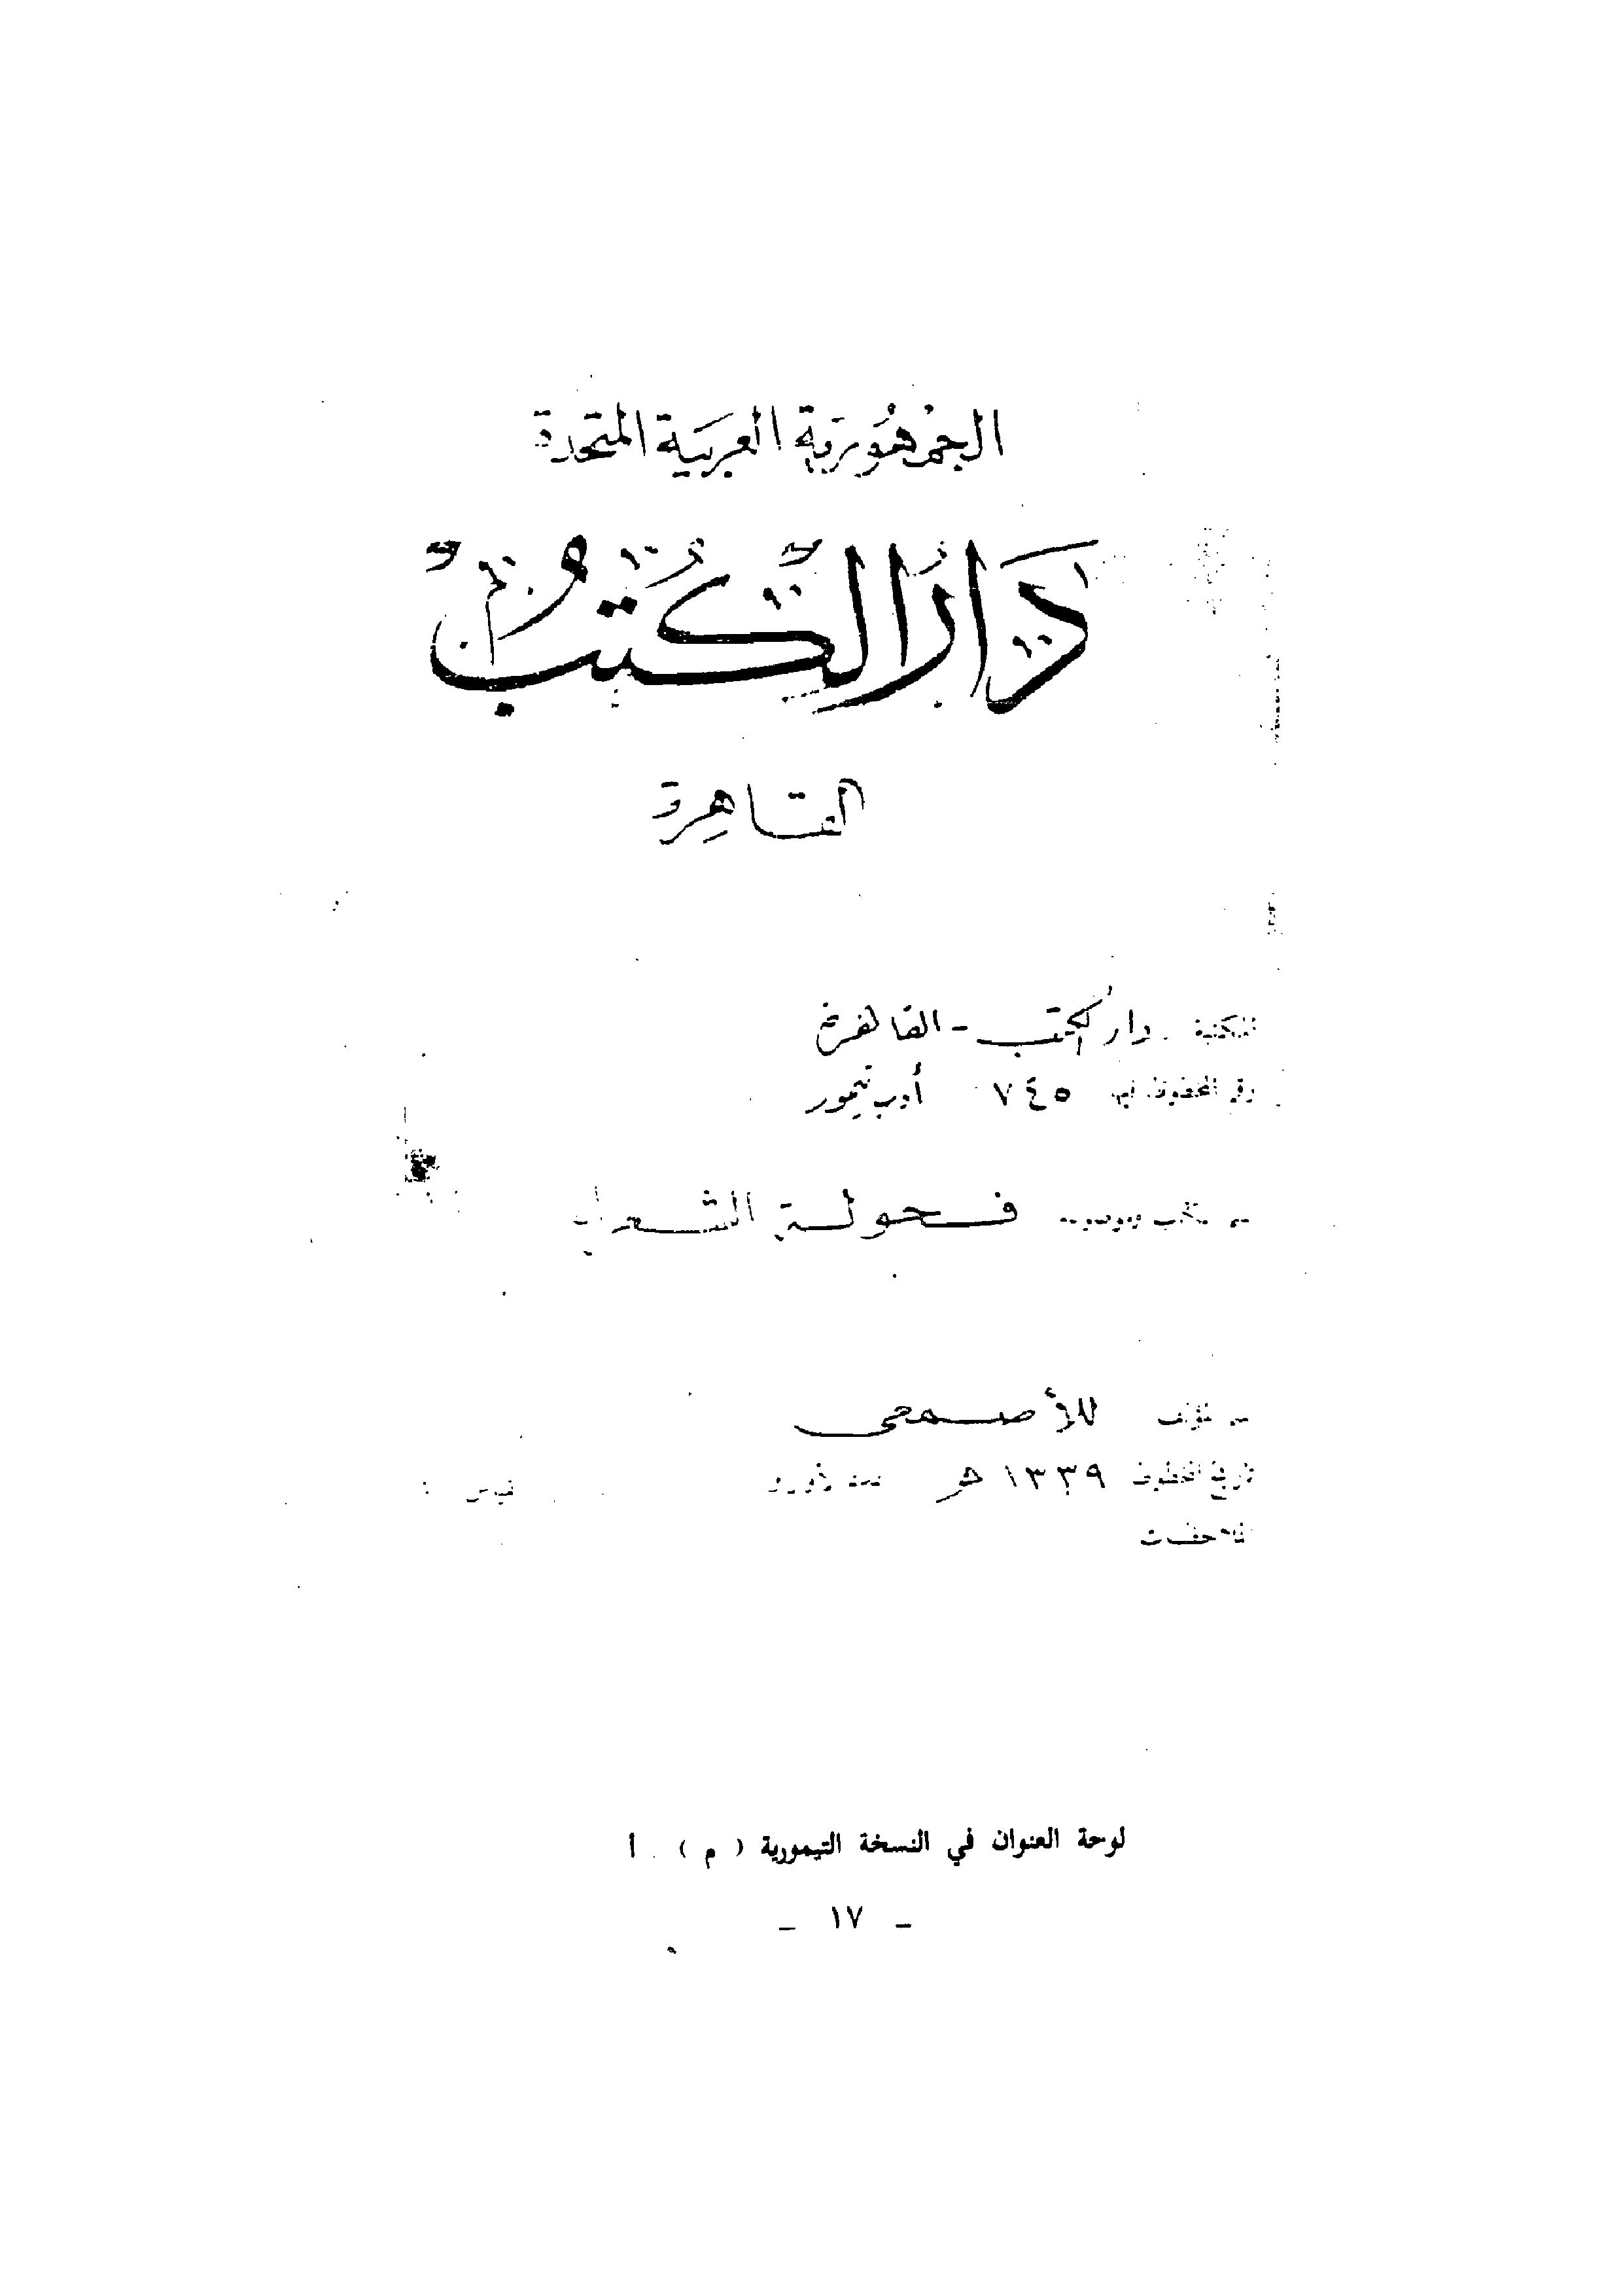 الجمهورية العربية المتحدة
دار الكتب
القاهرة
المكتبة دار الكتب - القاهرة
رقم المخطوط فيها ٧٤٥ أدب تيمور
فحولة الشعراء
اسم المؤلف للأصمعى
تاريخ المخطوط ١٣٣٩ هـ عدد الأوراق القياس :
الملاحظات
لوحة العنوان في النسخة التيمورية ( م ) . أ
ـ ١٧ ـ